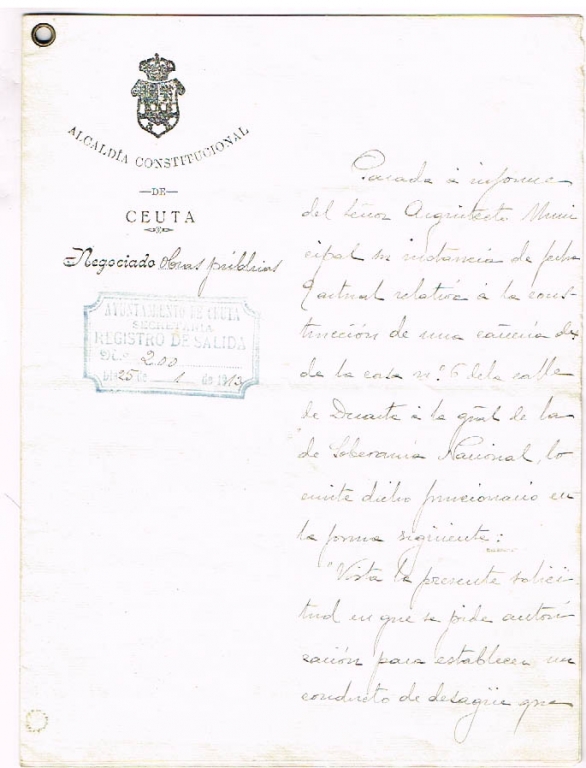 ALCALDÍA CONSTITUCIONAL
—DE—
CEUTA
Negociado obras públicas
AYUNTAMIENTO DE CEUTA
SECRETARIA
REGISTRO DE SALIDA
N.º 200
25 de 1 de 1913
Pasada á informe
del Señor Arquitecto Muni
cipal su instancia de fecha
9 actual relativa á la cons-
trucción de una cañería des
de la casa n.º 6 de la calle
de Duarte á la gral de la
de Soberanía Nacional, lo
emite dicho funcionario en
la forma siguiente:
"Vista la presente solici
tud en que se pide autori
zación para establecer un
conducto de desagüe que